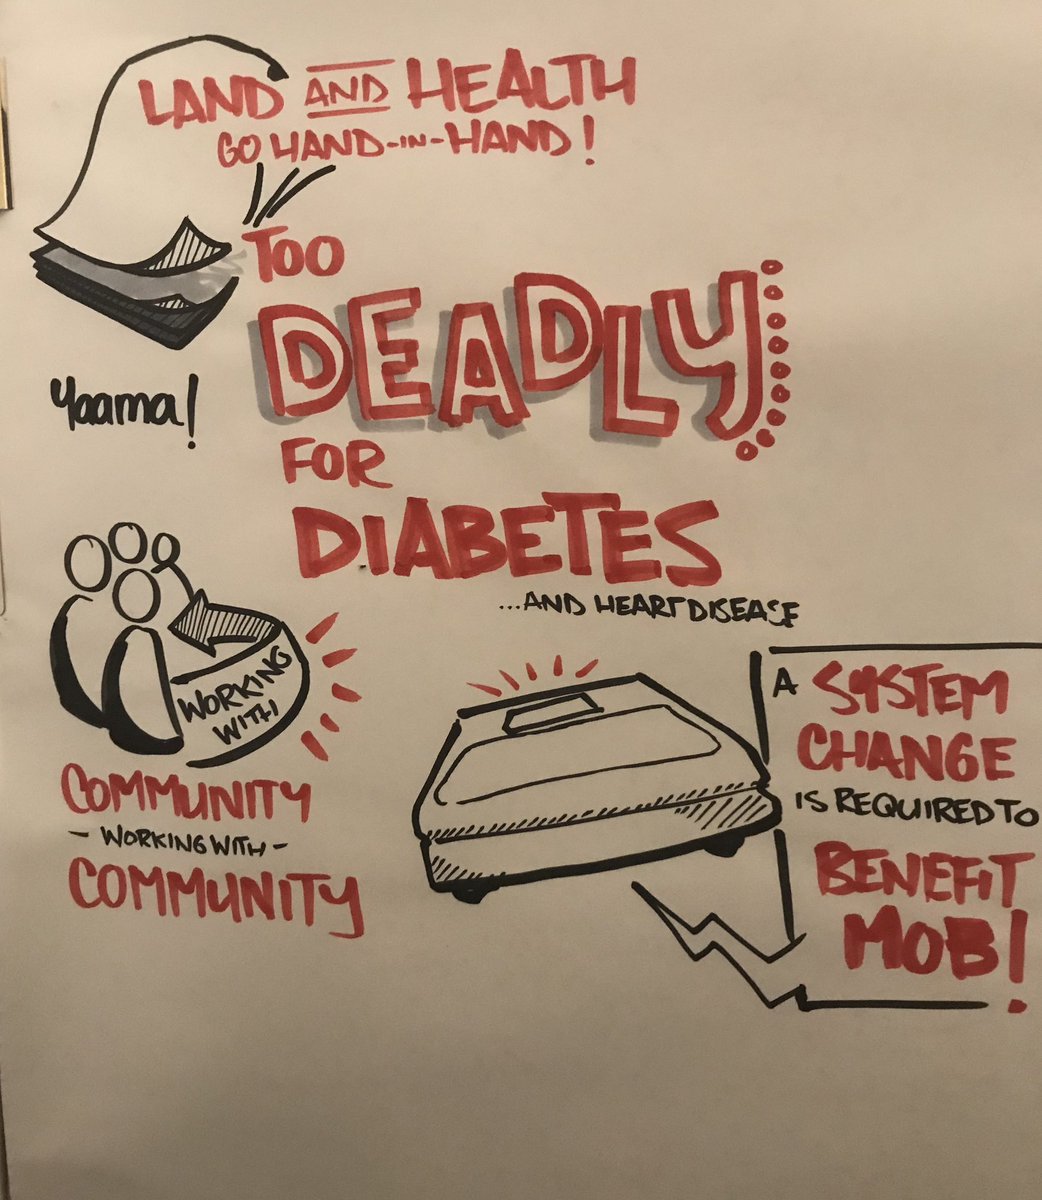 LAND AND HEALTH
GO HAND-IN-HAND!
TOO
DEADLY
FOR
DIABETES
...AND HEART DISEASE
Yaama!
WORKING
WITH
COMMUNITY
- WORKING WITH -
COMMUNITY
A SYSTEM
CHANGE
IS REQUIRED TO
BENEFIT
MOB!